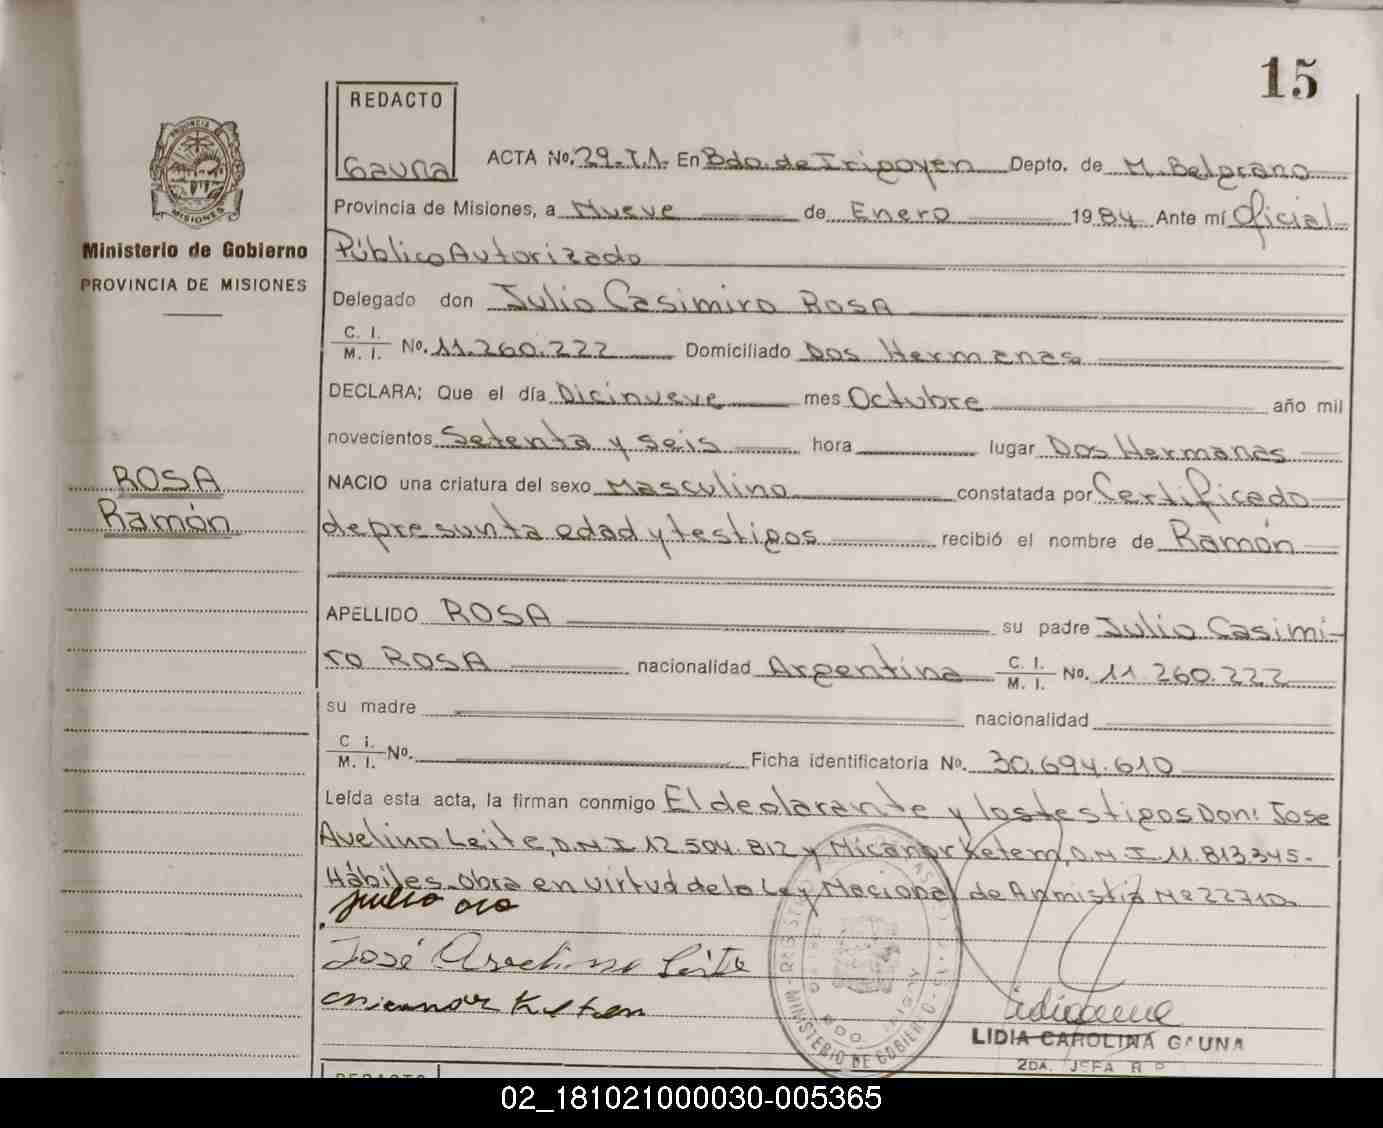 15
REDACTO
Gauna
ACTA No. 29. T.1. En Bdo. de Irigoyen Depto. de M. Belgrano
PROVINCIA
MISIONES
Ministerio de Gobierno
PROVINCIA DE MISIONES
Provincia de Misiones, a Nueve de Enero 1984 Ante mí Oficial
Público Autorizado
Delegado don Julio Casimiro ROSA
C. I.
M. I. No. 11.260.222 Domiciliado Dos Hermanas
DECLARA; Que el día Dicinueve mes Octubre año mil
novecientos Setenta y seis hora lugar Dos Hermanas
ROSA
Ramón
NACIO una criatura del sexo Masculino constatada por Certificado
de presunta edad y testigos recibió el nombre de Ramón
APELLIDO ROSA su padre Julio Casimi-
ro ROSA nacionalidad Argentina C. I. M. I. No. 11.260.222
su madre nacionalidad
C i. M. I. No. Ficha identificatoria No. 30.694.610
Leída esta acta, la firman conmigo El declarante y los testigos Don: Jose
Avelino Leite, D.N.I 12.504.812 y Nicanor Ketem, D.N.I. 11.813.345.
Hábiles. Obra en virtud de la Ley Nacional de Anmistia Nº 22710.
José Avelino Leite
MINISTERIO DE GOBIERNO
LIDIA CAROLINA GAUNA
2DA. JEFA R P
REDACTO
02_181021000030-005365